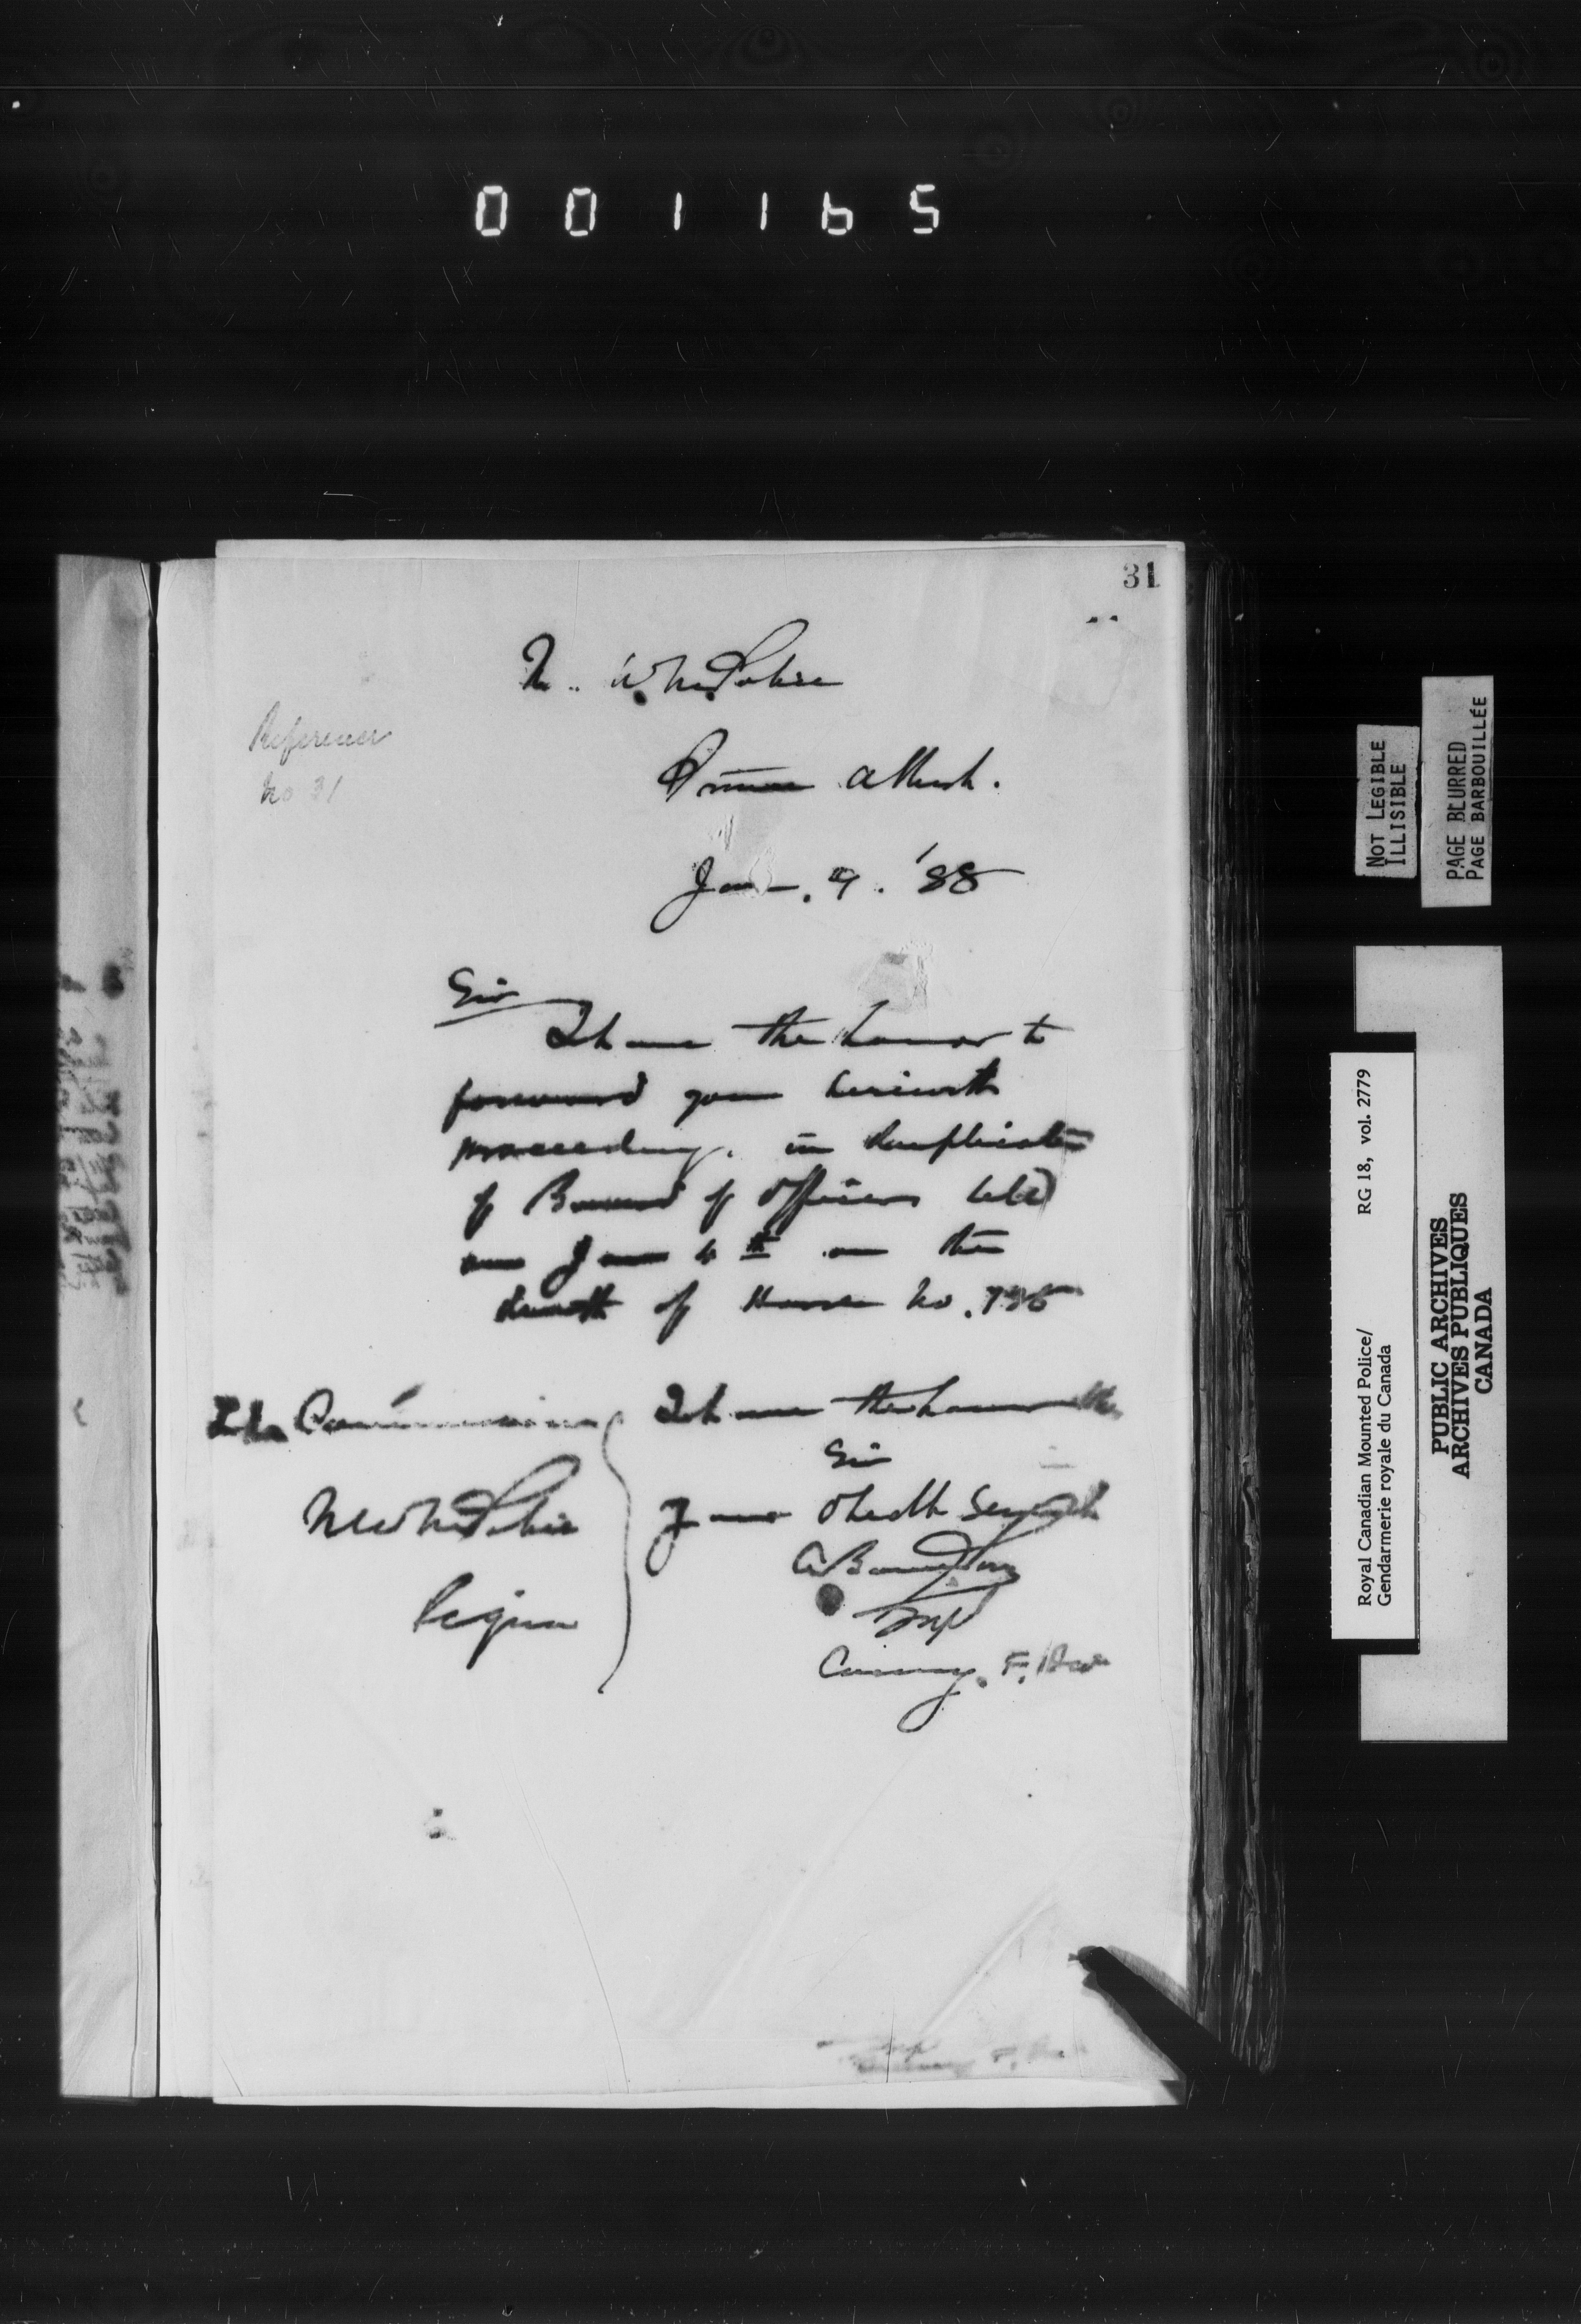 001165
31
N. W. M. Police
Reference
No 31
Prince Albert.
Jan. 9. '88
Sir
I have the honor to
forward you herewith
proceedings in duplicate
of Board of Officers held
on Jan 4th on the
death of Horse No.
The Commissioner
NWM Police
Regina
I have the honor to be
Sir
Your Obedt Servant
Supt
Commg. F. Div
NOT LEGIBLE
ILLISIBLE
PAGE BLURRED
PAGE BARBOUILLÉE
Royal Canadian Mounted Police/ RG 18, vol. 2779
Gendarmerie royale du Canada
PUBLIC ARCHIVES
ARCHIVES PUBLIQUES
CANADA